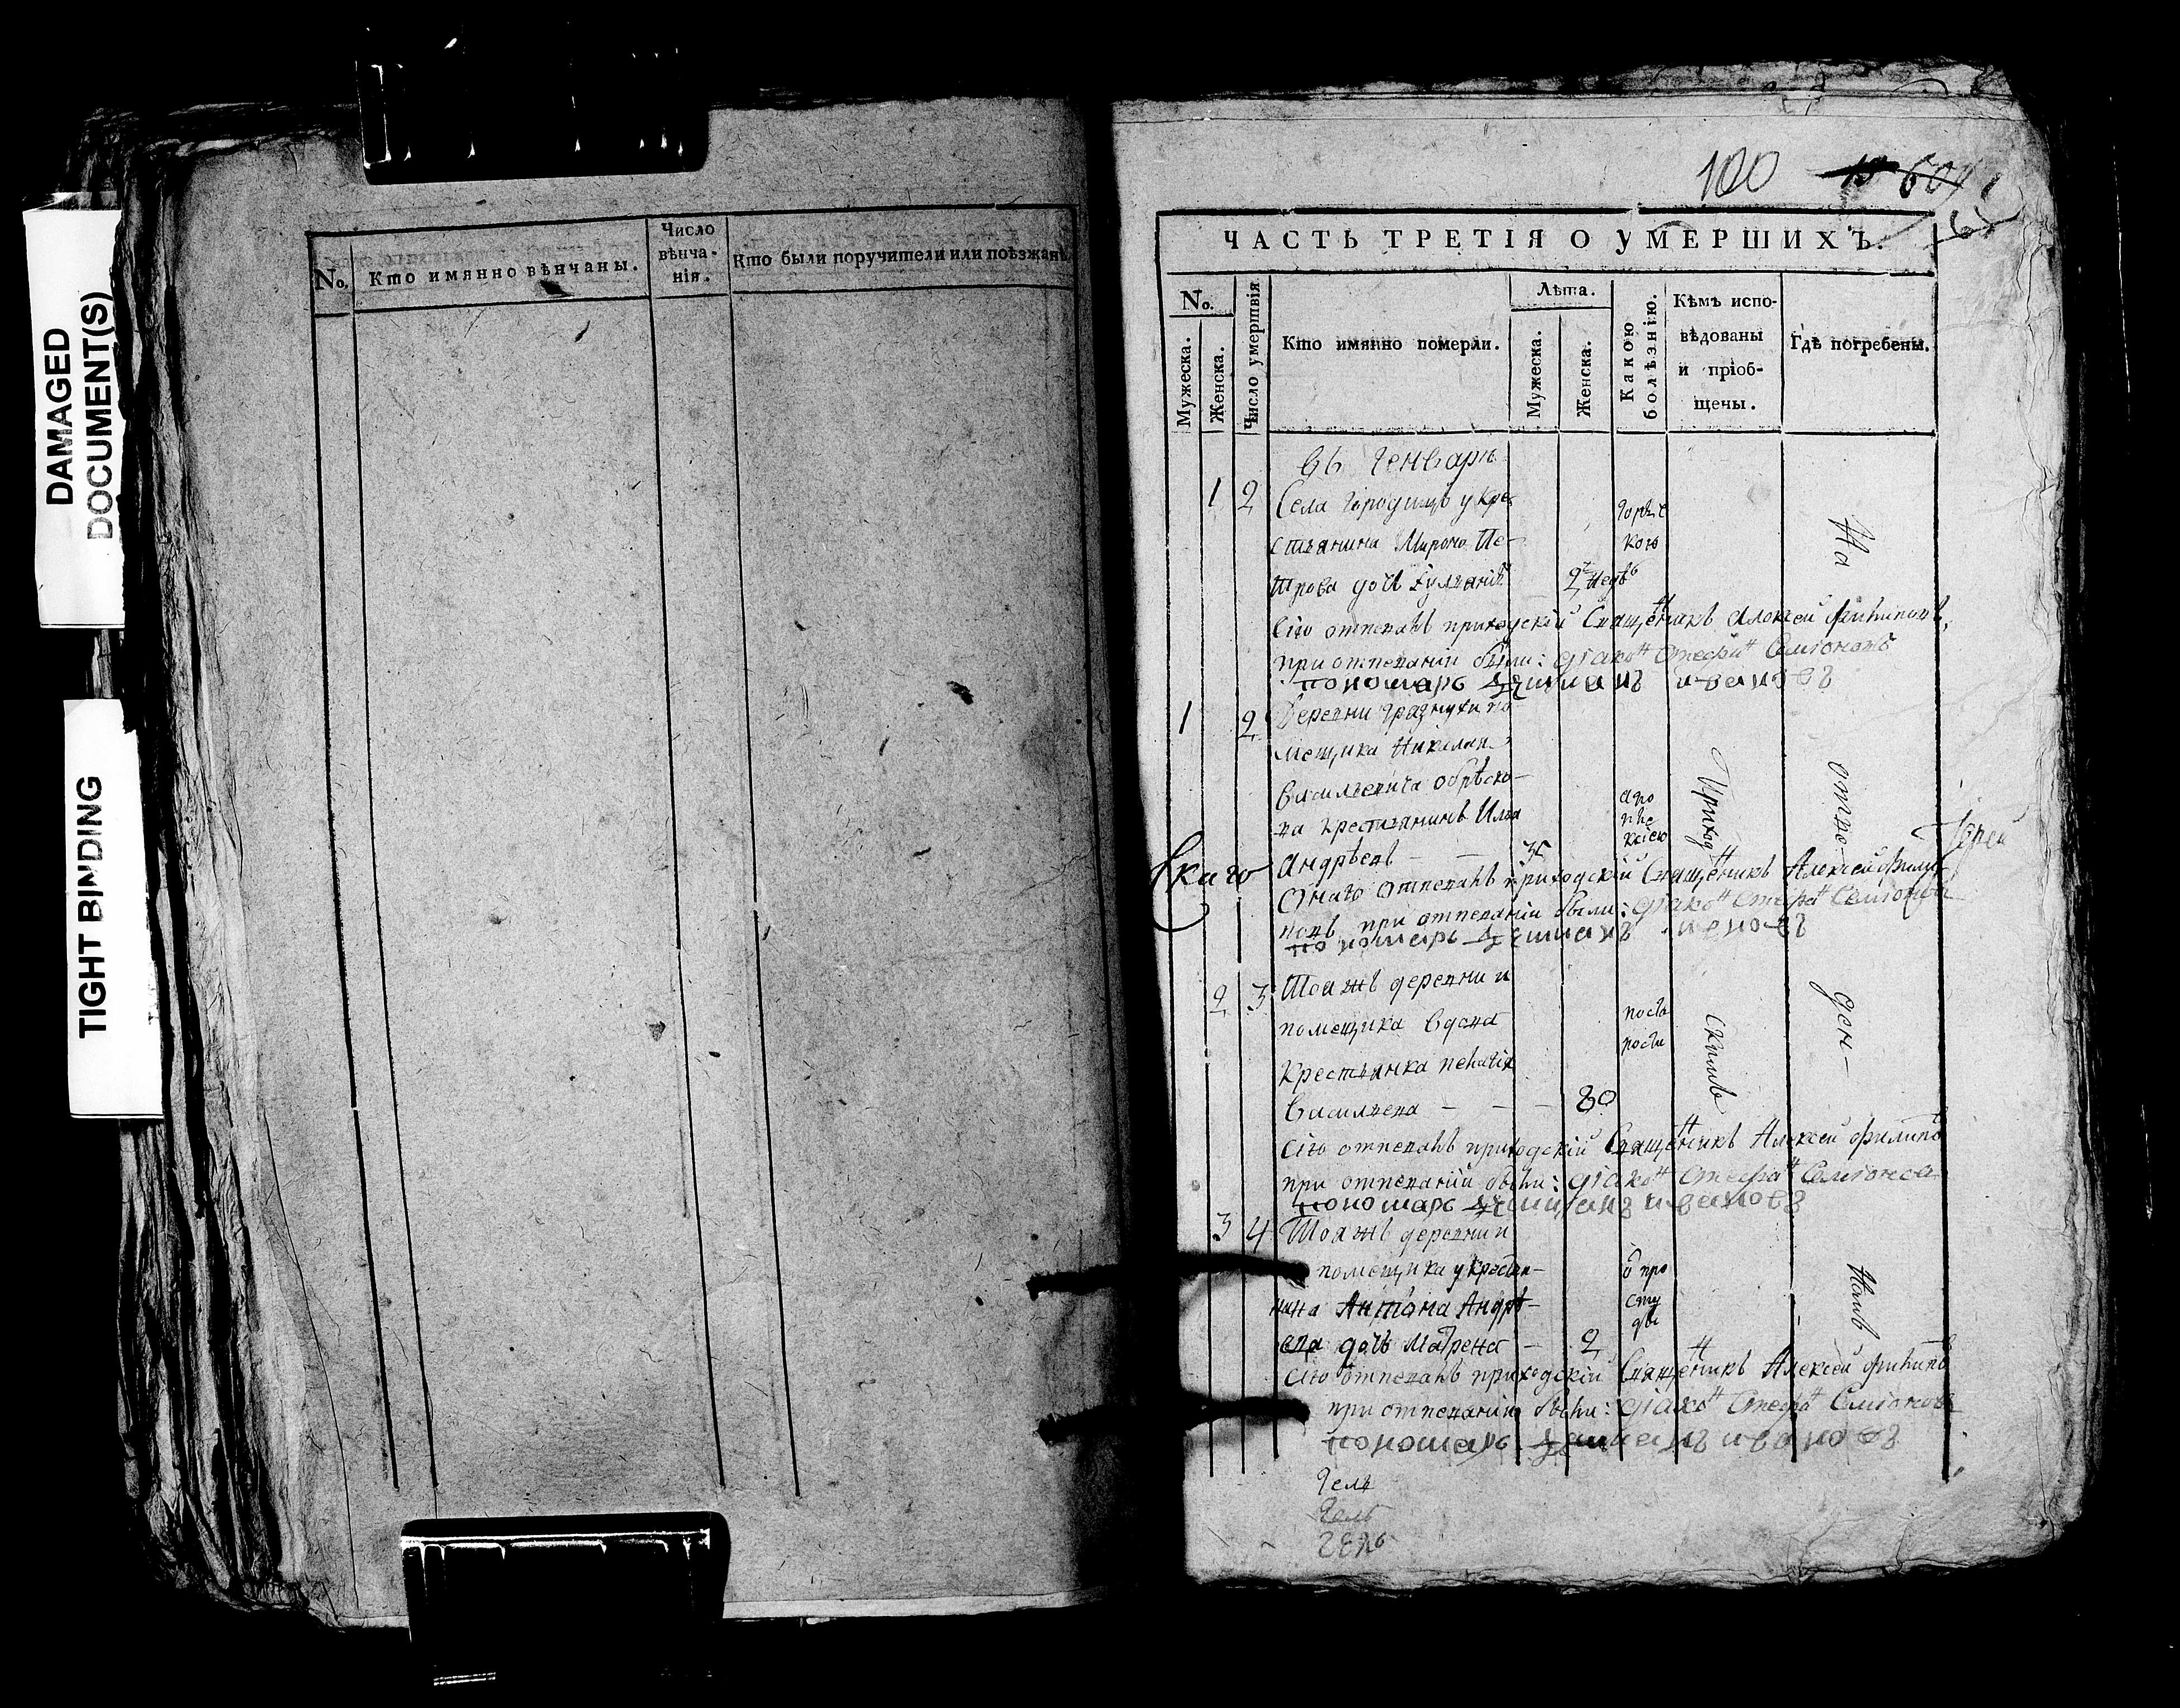 DAMAGED
DOCUMENT(S)
TIGHT BINDING
No.
Кто имянно вѣнчаны.
Число
вѣнча-
нія.
Кто были поручители или поѣзжане
100
ЧАСТЬ ТРЕТІЯ О УМЕРШИХЪ.
No.
Мужеска.
Женска.
Число умертвія
Кто имянно померли.
Лѣта.
Мужеска.
Женска.
Какою
болѣзнію.
Кѣмъ испо-
вѣдованы
и пріоб-
щены.
Гдѣ погребены.
въ Генварѣ
1 2 Села Городищъ у кре-
стьянина Мирона Пе-
трова дочь
2 недѣ
Сію отпевалъ приходскій Священникъ Алексей Филиповъ,
при отпеваніи были: діаконъ Стефанъ Семіоновъ
пономарь ивановъ
1 2 Деревни по-
мещика Николая
Васильевича Обрѣско-
ва крестьянинъ Илья
Андрѣевъ
апо
пле
ксіею
Приход
скимъ
Онаго отпевалъ приходскій Священникъ Алексей Фили-
повъ при отпеваніи были: діаконъ Стефанъ Семіоновъ
пономарь ивановъ
Іерей
2 3 Той жъ деревни и
помещика вдова
крестьянка пелагія
Василиева 80
Сію отпевалъ приходскій Священникъ Алексей Филипо
при отпеваніи были: діаконъ Стефанъ Семіонов
пономарь ивановъ
3 4 Той жъ деревни и
помещика у крестья-
нина Антона Андрѣ-
ева дочь Матрена 2
о про
сту
ды
Сію отпевалъ приходскій Священникъ Алексей Филипо
при отпеваніи были: діаконъ Стефанъ Семіоновъ
пономарь ивановъ
На
отве-
ден-
номъ